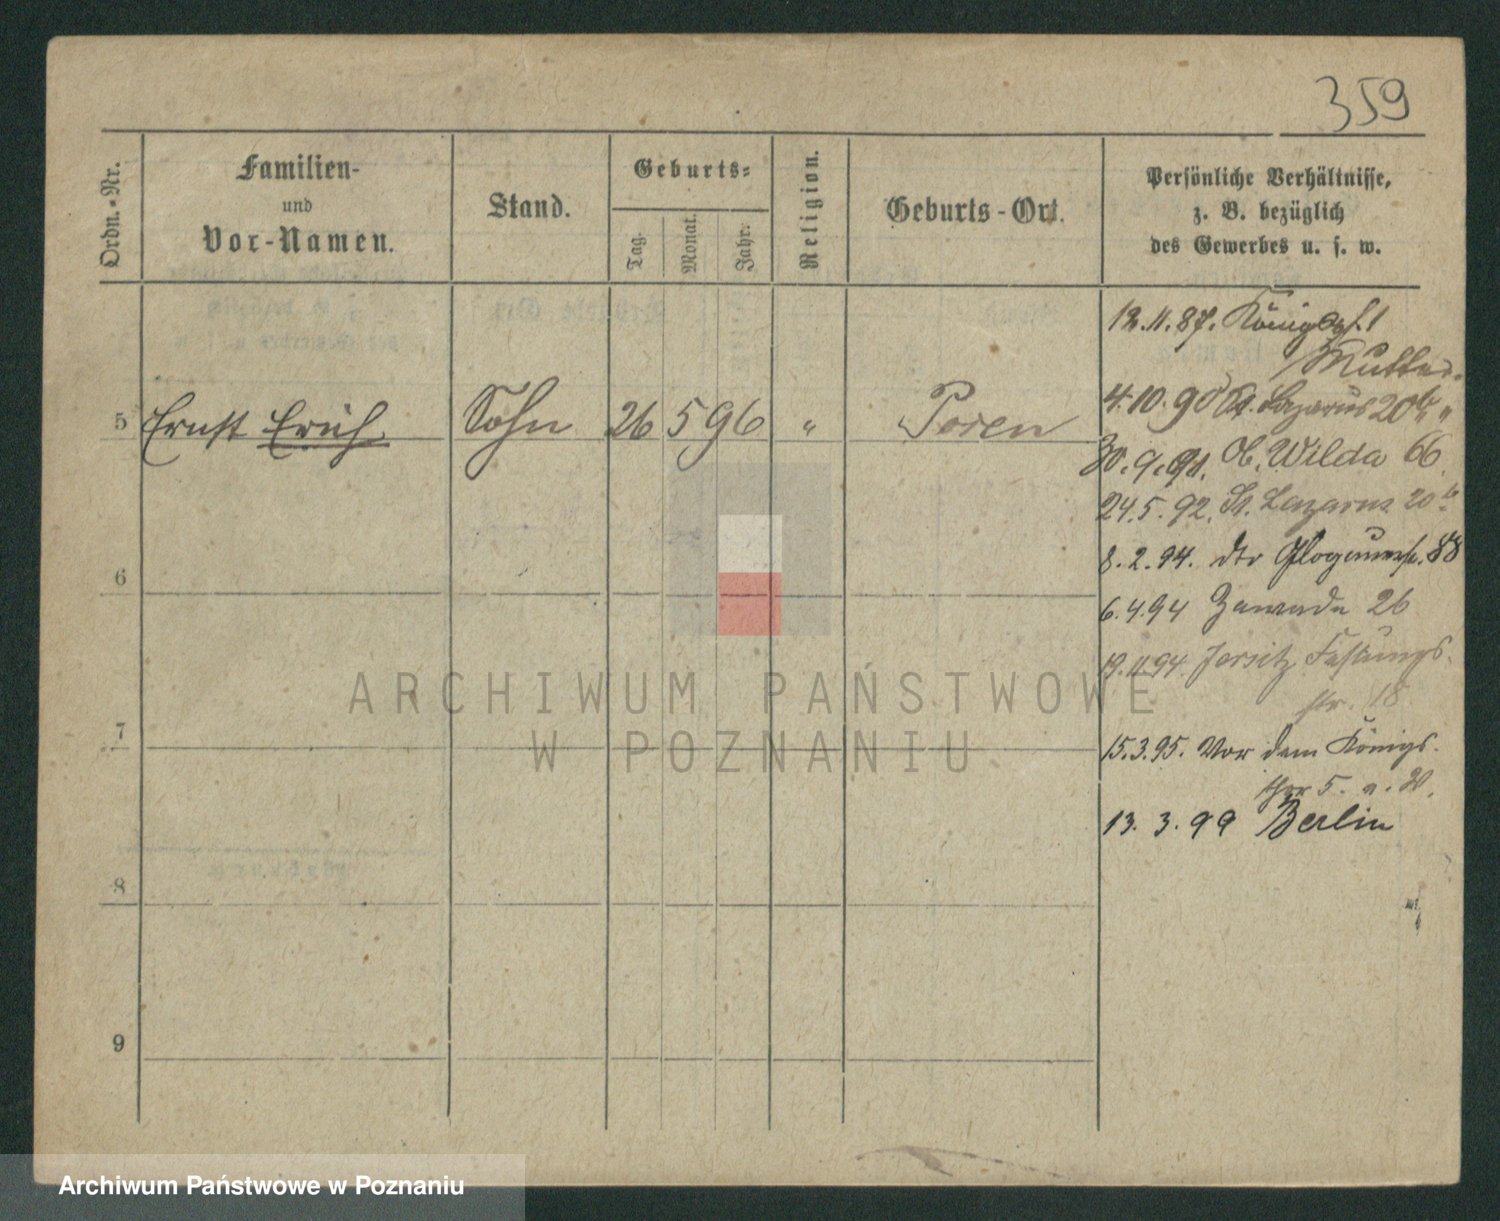 359
Ordn.-Nr.
Familien-
und
Vor-Namen.
Stand.
Geburts-
Tag.
Monat.
Jahr.
Religion.
Geburts-Ort.
Persönliche Verhältnisse,
z. B. bezüglich
des Gewerbes u. s. w.
12.11.87. Königspl. 1
Mutter.
5 Ernst Erich Sohn 26 5 96 " Posen
4.10.90 St. Lazarus 20b "
30.9.91. Ob. Wilda 66
24.5.92. St. Lazarus 20b
8.2.94. dto Glogauerstr. 88
6
6.4.94 Zawade 26
19.11.94. Jersitz Festungs-
str. 18
7
15.3.95. Vor dem Königs-
thor 5.
13.3.99 Berlin
8
9
ARCHIWUM PAŃSTWOWE
W POZNANIU
Archiwum Państwowe w Poznaniu